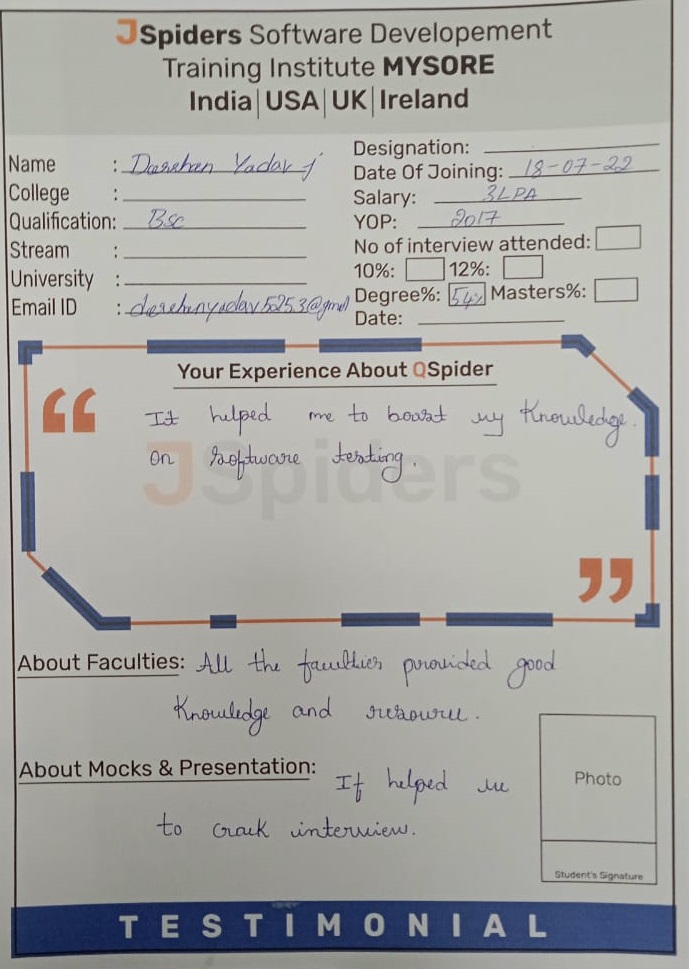 JSpiders Software Developement
Training Institute MYSORE
India|USA|UK|Ireland
Name : Darshan Yadav j
College :
Qualification: Bsc
Stream :
University :
Email ID : darshanyadav5253@gmail
Designation:
Date Of Joining: 18-07-22
Salary: 3LPA
YOP: 2017
No of interview attended:
10%: 12%:
Degree%: 54% Masters%:
Date:
Your Experience About QSpider
It helped me to boost my Knowledge.
on software testing.
JSpiders
About Faculties: All the faculties provided good
Knowledge and resource.
About Mocks & Presentation: It helped me
to crack interview.
Photo
Student's Signature
TESTIMONIAL